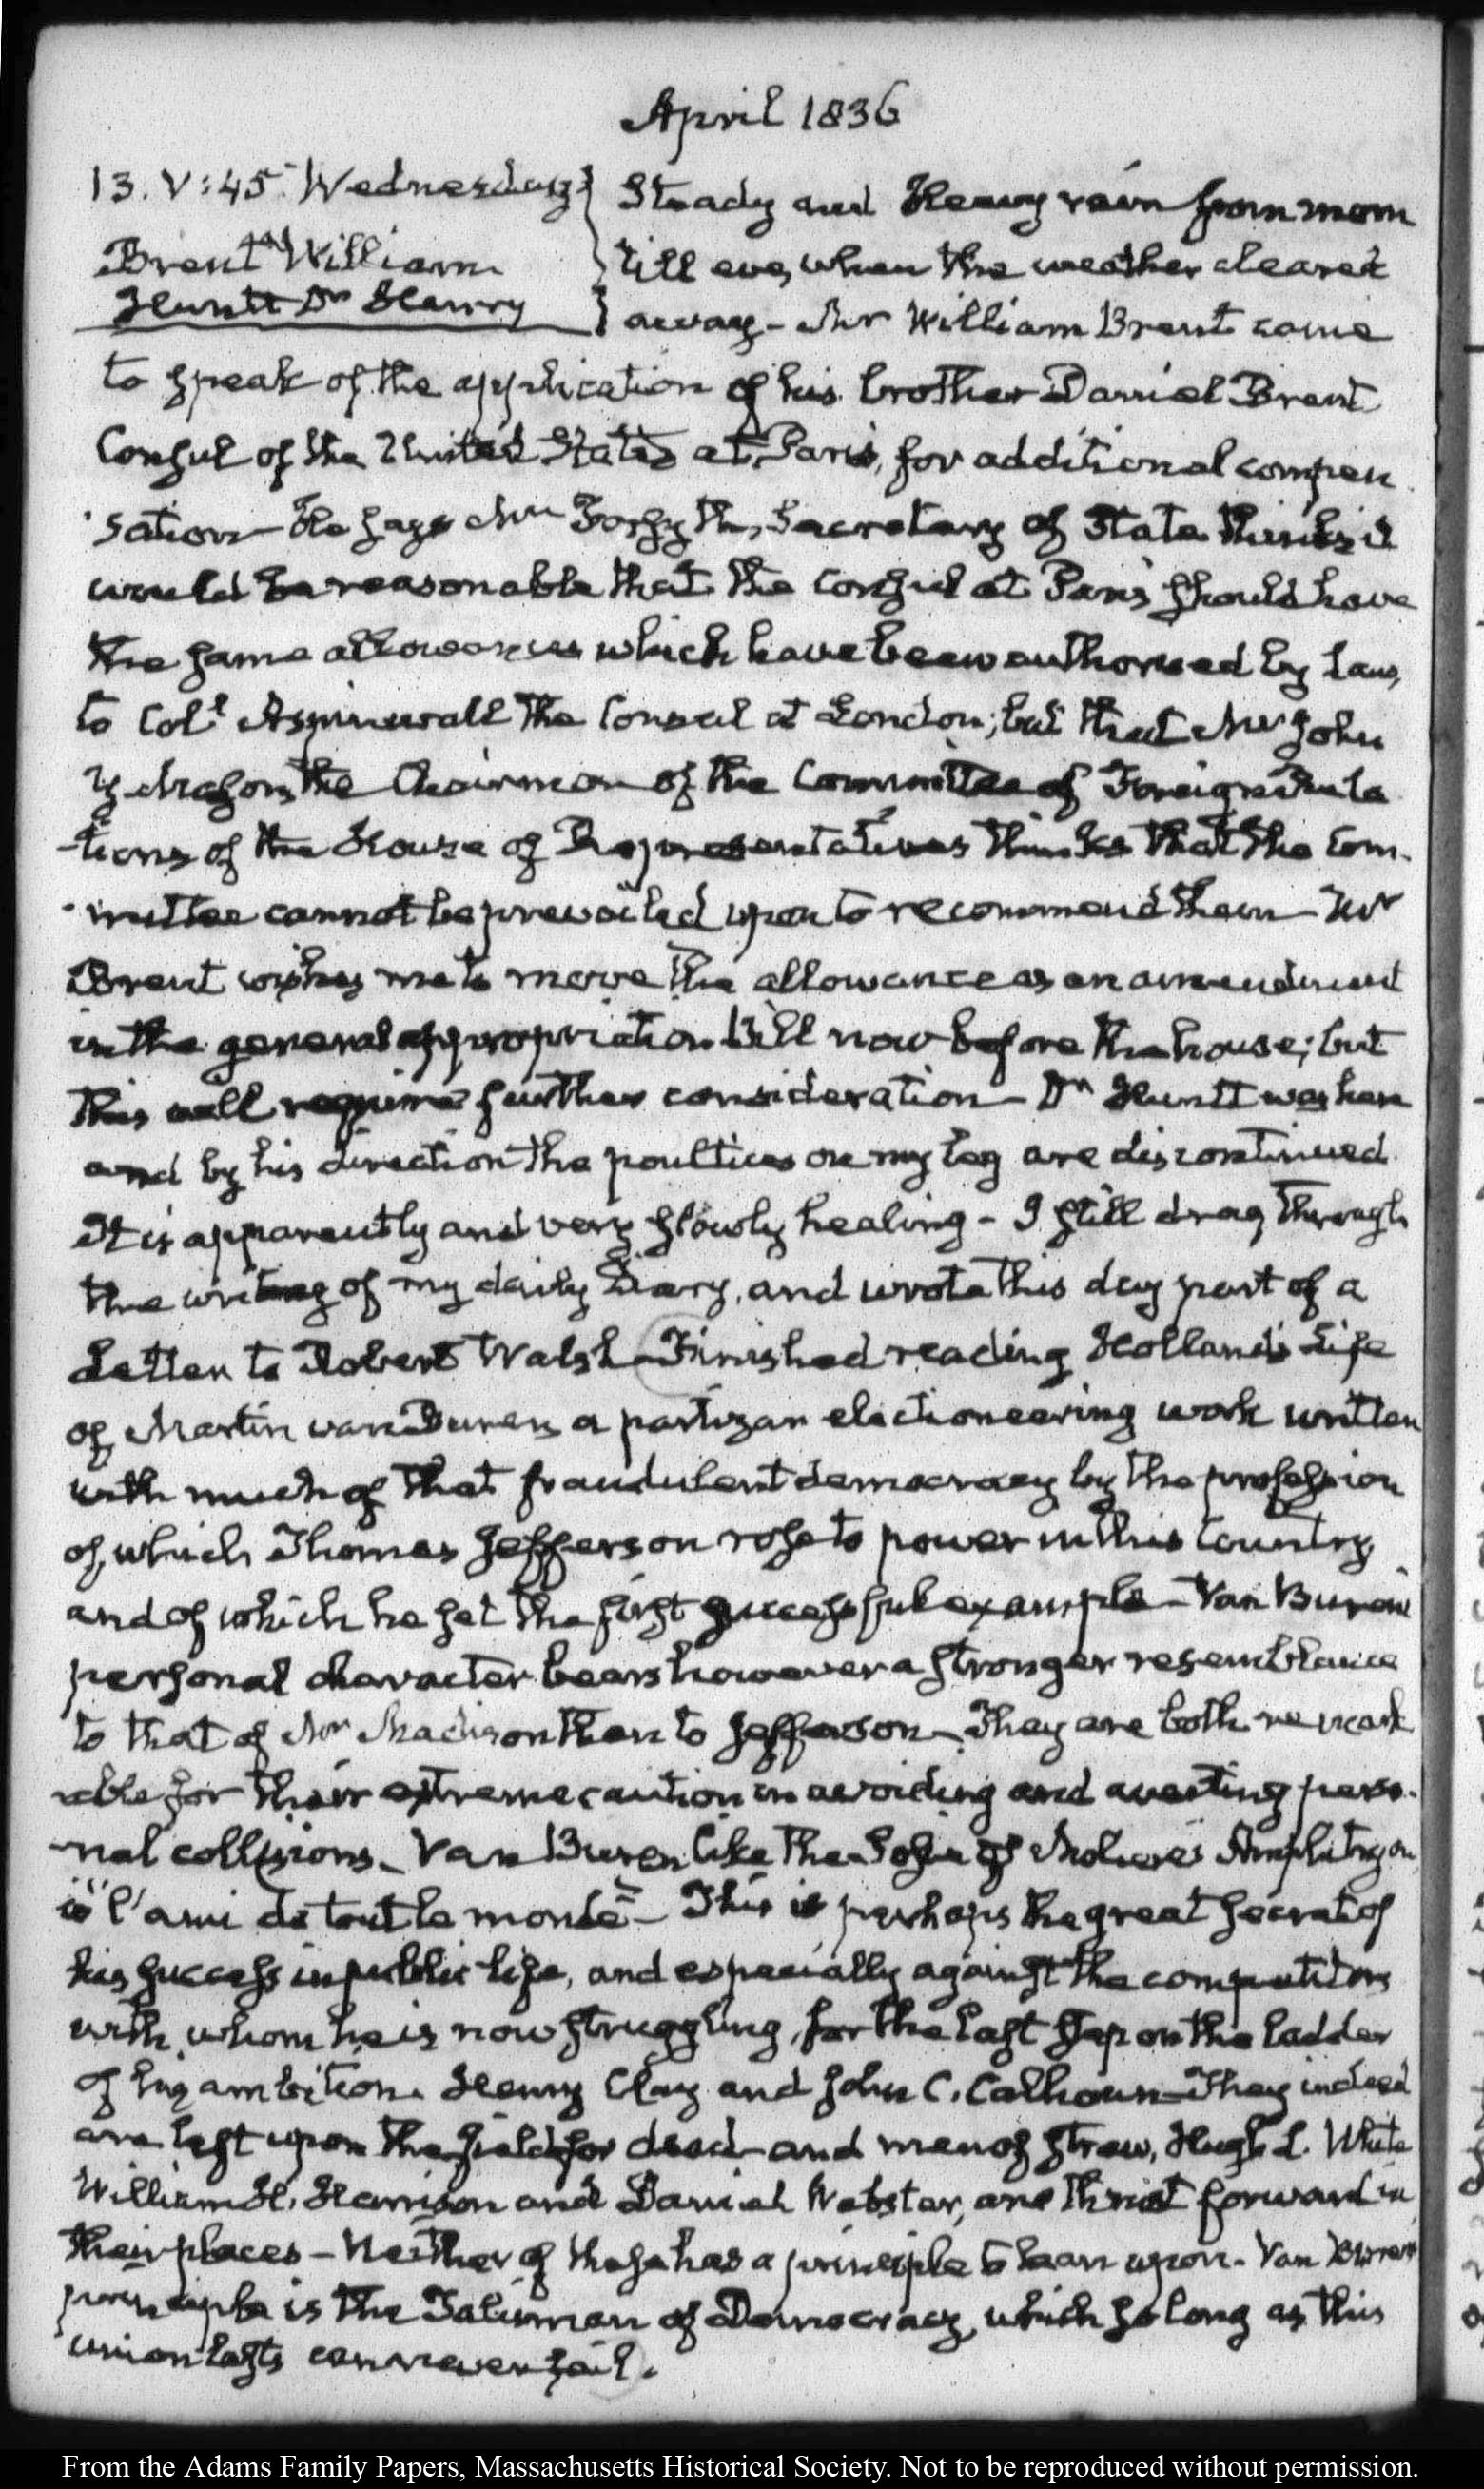 April 1836
13. V:45. Wednesday
Brent William
Huntt Dr Henry
Steady and Heavy rain from morn
till eve, when the weather cleared
away – Mr William Brent came
to speak of the application of his brother Daniel Brent
Consul of the United States at Paris, for additional compen
sation – He says Mr Forsyth, Secretary of State thinks it
would be reasonable that the Consul at Paris should have
the same allowances which have been authorised by law,
to Colt Aspinwall the Consul at London; but that Mr John
Y. Mason, the Chairman of the Committee of Foreign Rela
-tions of the House of Representatives thinks that the Com-
-mittee cannot be prevailed upon to recommend them – Mr
Brent wishes me to move the allowance as an amendment
in the general appropriation Bill now before the house; but
this will require further consideration – Dr Huntt was here
and by his direction the poultices on my leg are discontinued.
It is apparently and very slowly healing – I still drag through
the writing of my daily Diary, and wrote this day part of a
Letter to Robert Walsh – Finished reading Holland's Life
of Martin van Buren, a partizan electioneering work written
with much of that fraudulent democracy by the profession
of which Thomas Jefferson rose to power in this Country,
and of which he set the first successful example – Van Buren's
personal character bears however a stronger resemblance
to that of Mr Madison than to Jefferson – They are both remark
able for their extreme caution in avoiding and averting perso-
-nal collisions – Van Buren like the Sosie of Moliere's Amphitryon,
is "l'ami de tout le monde" – This is perhaps the great secret of
his success in public life, and especially against the competitors
with whom he is now struggling, for the last step on the ladder
of his ambition. Henry Clay and John C. Calhoun – They indeed
are left upon the field for dead – and men of straw, Hugh L. White
William H. Harrison and Daniel Webster, are thrust forward in
their places – Neither of these has a principle to lean upon – Van Buren's
principle is the Talisman of Democracy, which so long as this
Union lasts can never fail.
From the Adams Family Papers, Massachusetts Historical Society. Not to be reproduced without permission.